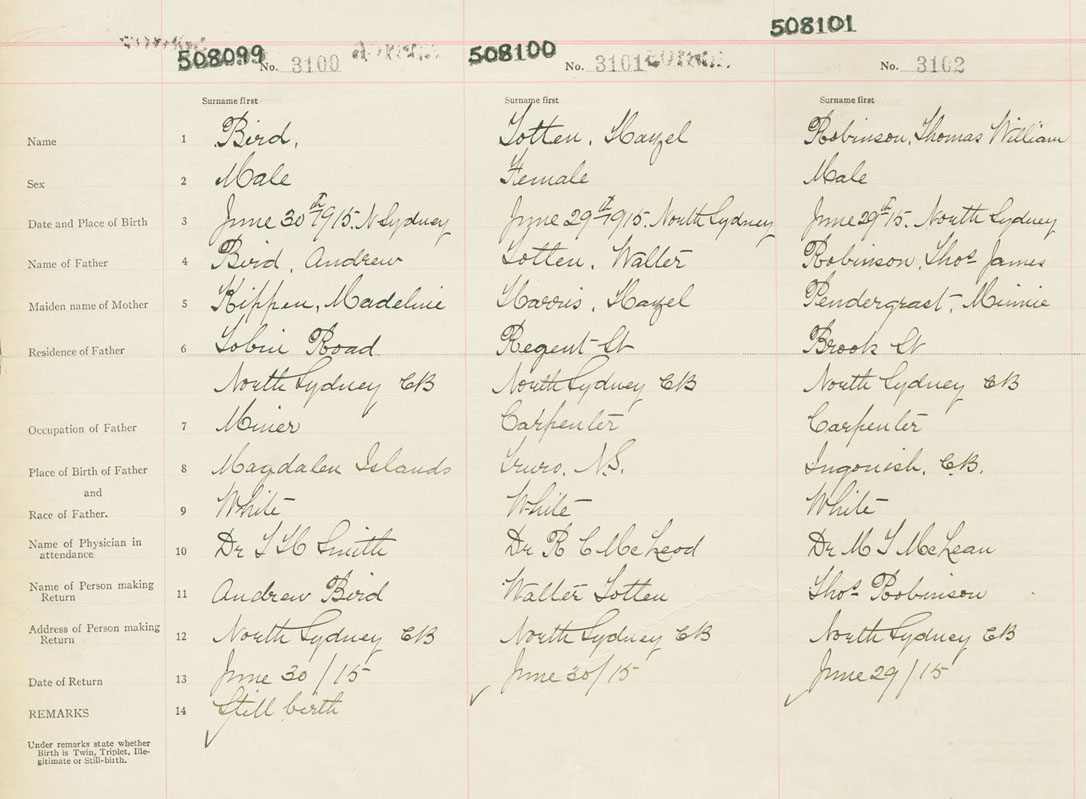 508101
508099 508100
No. 3100 No. 3101 No. 3102
Surname first Surname first Surname first
Name 1 Bird, Totten, Hazel Robinson, Thomas William
Sex 2 Male Female Male
Date and Place of Birth 3 June 30th 1915. N Sydney June 29th 1915. North Sydney June 29th 15. North Sydney
Name of Father 4 Bird, Andrew Totten, Walter Robinson, Thos James
Maiden name of Mother 5 Kippen, Madeline Harris, Hazel Pendergrast, Minnie
Residence of Father 6 Tobin Road Regent St Brook St
North Sydney CB North Sydney CB North Sydney CB
Occupation of Father 7 Miner Carpenter Carpenter
Place of Birth of Father 8 Magdalen Islands Truro, N.S. Ingonish, C.B.
and
Race of Father. 9 White White White
Name of Physician in
attendance 10 Dr Smith Dr R C McLeod Dr M T McLean
Name of Person making
Return 11 Andrew Bird Walter Totten Thos Robinson
Address of Person making
Return 12 North Sydney CB North Sydney CB North Sydney CB
Date of Return 13 June 30/15 June 30/15 June 29/15
REMARKS 14 Still birth
Under remarks state whether
Birth is Twin, Triplet, Ille-
gitimate or Still-birth.